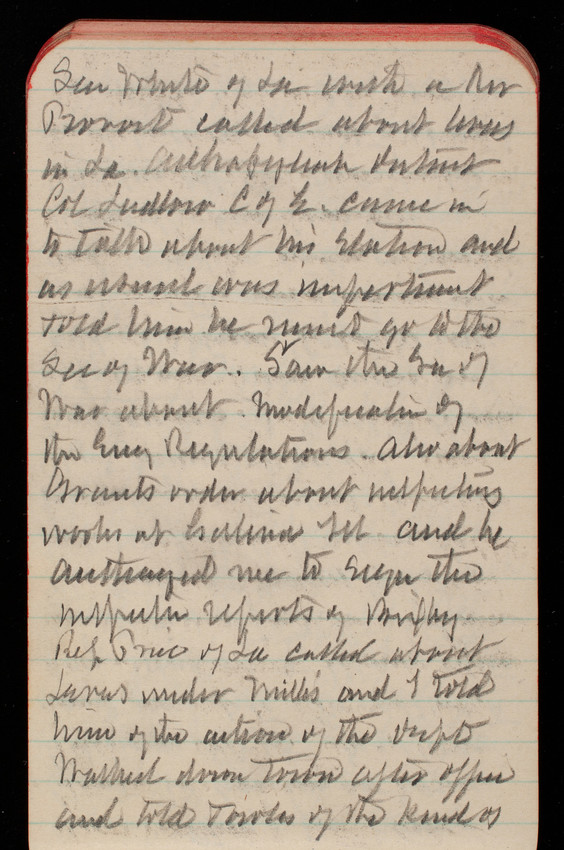 Sen White of La with a Mr
called about levees
in La. Atchafaylah District
Col Ludlow C of E. came in
to talk about his Station and
as usual was important
told him he must go to the
Sec of War. Saw the Sec of
War about Modification of
the Eng Regulations. Also about
Grants order about inspecting
works at Galena Ill and he
me to sign the
inspection reports of
Rep Price of La called about
Levees under Mills and I told
him of the action of the Dept
Walked down town after office
and told of the kind of